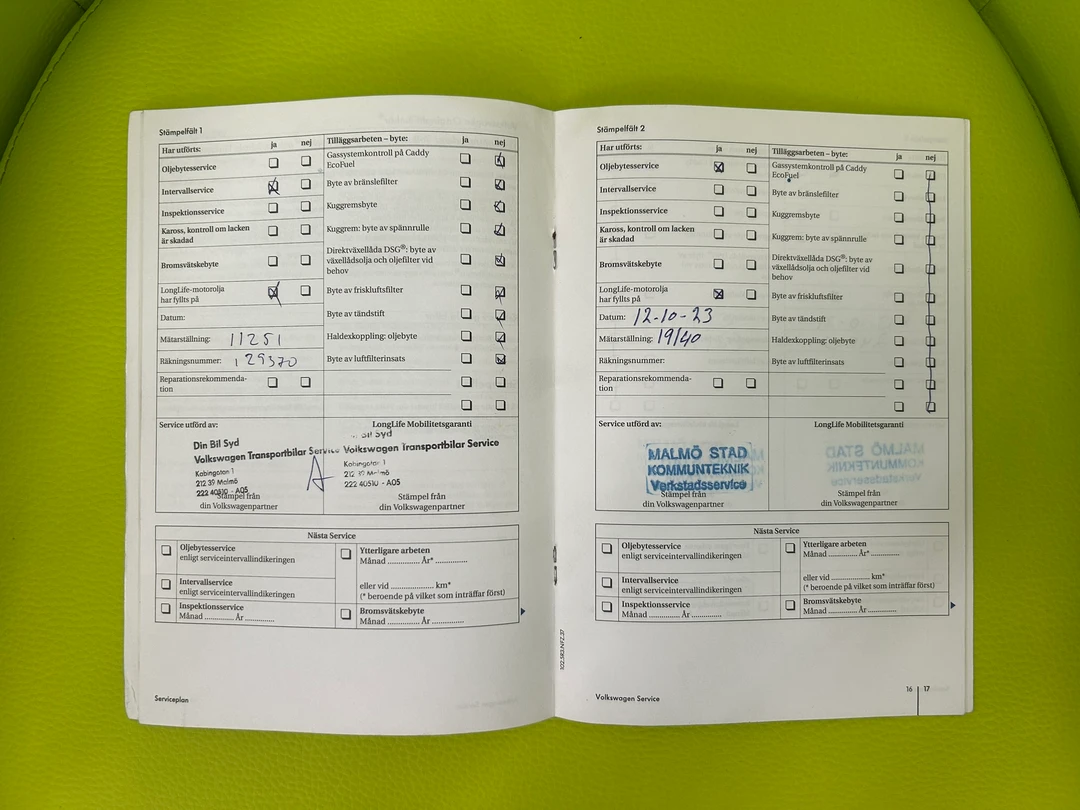 Stämpelfält 1
Har utförts: ja nej Tilläggsarbeten – byte: ja nej
Oljebytesservice
Gassystemkontroll på Caddy
EcoFuel
Intervallservice
Byte av bränslefilter
Inspektionsservice
Kuggremsbyte
Kaross, kontroll om lacken
är skadad
Kuggrem: byte av spännrulle
Bromsvätskebyte
Direktväxellåda DSG®: byte av
växellådsolja och oljefilter vid
behov
LongLife-motorolja
har fyllts på
Byte av friskluftsfilter
Datum:
Byte av tändstift
Mätarställning: 11251
Haldexkoppling: oljebyte
Räkningsnummer: 129370
Byte av luftfilterinsats
Reparationsrekommenda-
tion
Service utförd av:
LongLife Mobilitetsgaranti
Din Bil Syd
Volkswagen Transportbilar Service
Kabingatan 1
212 39 Malmö
222 40510 - A05
Stämpel från
din Volkswagenpartner
Bil Syd
Volkswagen Transportbilar Service
Kabingatan 1
212 39 Malmö
222 40510 - A05
Stämpel från
din Volkswagenpartner
Nästa Service
Oljebytesservice
enligt serviceintervallindikeringen
Ytterligare arbeten
Månad ............ År* ..............
Intervallservice
enligt serviceintervallindikeringen
eller vid .................. km*
(* beroende på vilket som inträffar först)
Inspektionsservice
Månad ............ År ............
Bromsvätskebyte
Månad ............ År ............
Serviceplan
Stämpelfält 2
Har utförts: ja nej Tilläggsarbeten – byte: ja nej
Oljebytesservice
Gassystemkontroll på Caddy
EcoFuel
Intervallservice
Byte av bränslefilter
Inspektionsservice
Kuggremsbyte
Kaross, kontroll om lacken
är skadad
Kuggrem: byte av spännrulle
Bromsvätskebyte
Direktväxellåda DSG®: byte av
växellådsolja och oljefilter vid
behov
LongLife-motorolja
har fyllts på
Byte av friskluftsfilter
Datum: 12-10-23
Byte av tändstift
Mätarställning: 19140
Haldexkoppling: oljebyte
Räkningsnummer:
Byte av luftfilterinsats
Reparationsrekommenda-
tion
Service utförd av:
LongLife Mobilitetsgaranti
MALMÖ STAD
KOMMUNTEKNIK
Verkstadsservice
Stämpel från
din Volkswagenpartner
Stämpel från
din Volkswagenpartner
Nästa Service
Oljebytesservice
enligt serviceintervallindikeringen
Ytterligare arbeten
Månad ............ År* ..............
Intervallservice
enligt serviceintervallindikeringen
eller vid .................. km*
(* beroende på vilket som inträffar först)
Inspektionsservice
Månad ............ År ............
Bromsvätskebyte
Månad ............ År ............
102.5R3.NFZ.37
Volkswagen Service
16 17